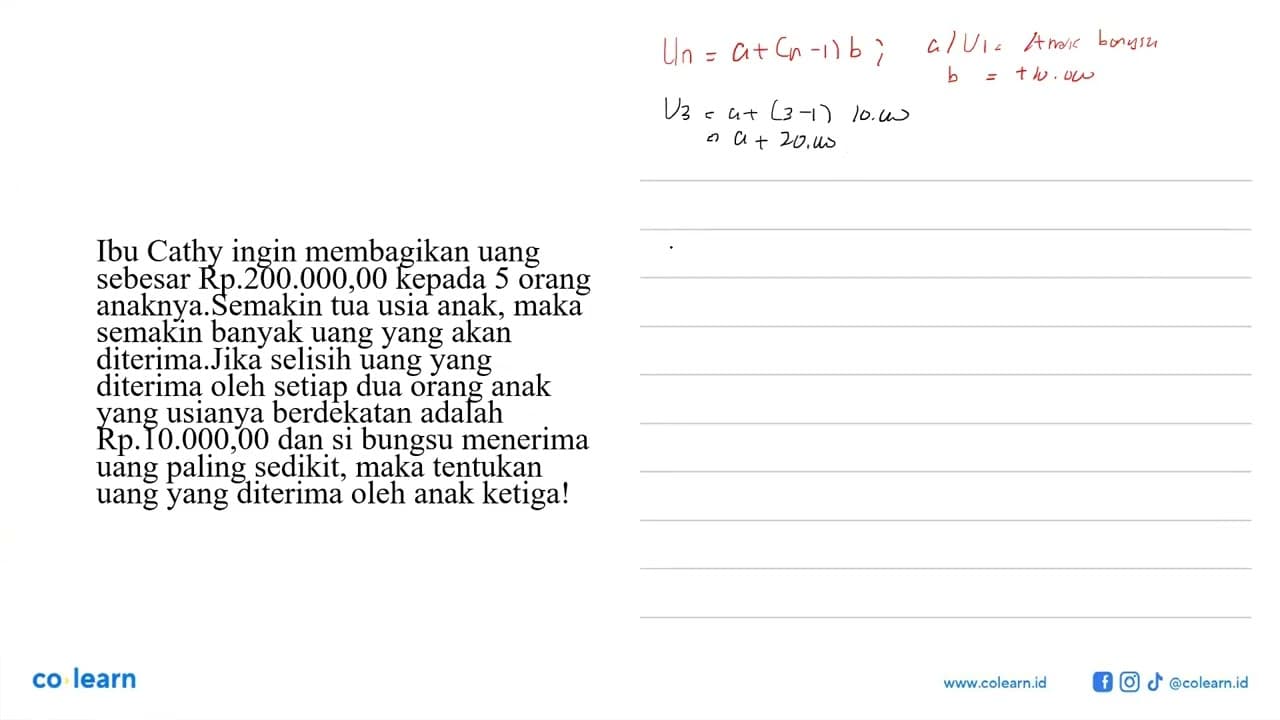 Un = a + (n - 1) b ; a / U1 = Anak bongsu
b = + 10.000
U3 = a + (3 - 1) 10.000
= a + 20.000
Ibu Cathy ingin membagikan uang
sebesar Rp.200.000,00 kepada 5 orang
anaknya.Semakin tua usia anak, maka
semakin banyak uang yang akan
diterima.Jika selisih uang yang
diterima oleh setiap dua orang anak
yang usianya berdekatan adalah
Rp.10.000,00 dan si bungsu menerima
uang paling sedikit, maka tentukan
uang yang diterima oleh anak ketiga!
co learn
www.colearn.id
@colearn.id